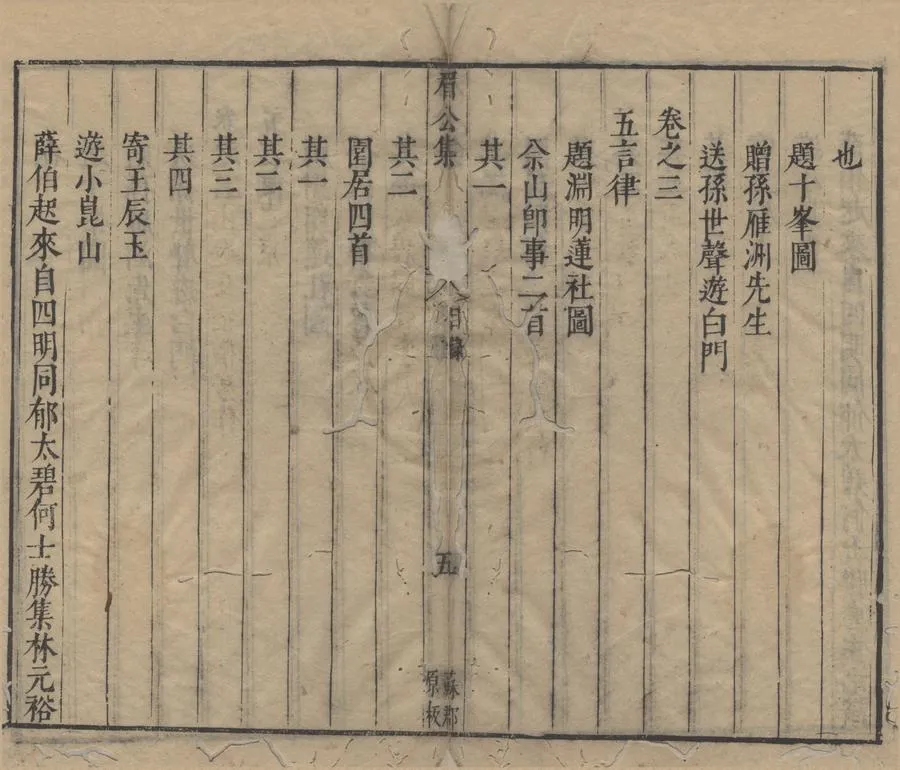 也
題十峯圖
贈孫雁洲先生
送孫世聲遊白門
卷之三
五言律
題淵明蓮社圖
佘山卽事二首
其一
眉公集
目錄
五
蘇郡
原板
其二
園居四首
其一
其二
其三
其四
寄王辰玉
遊小崑山
薛伯起來自四明同郁太碧何士勝集林元裕